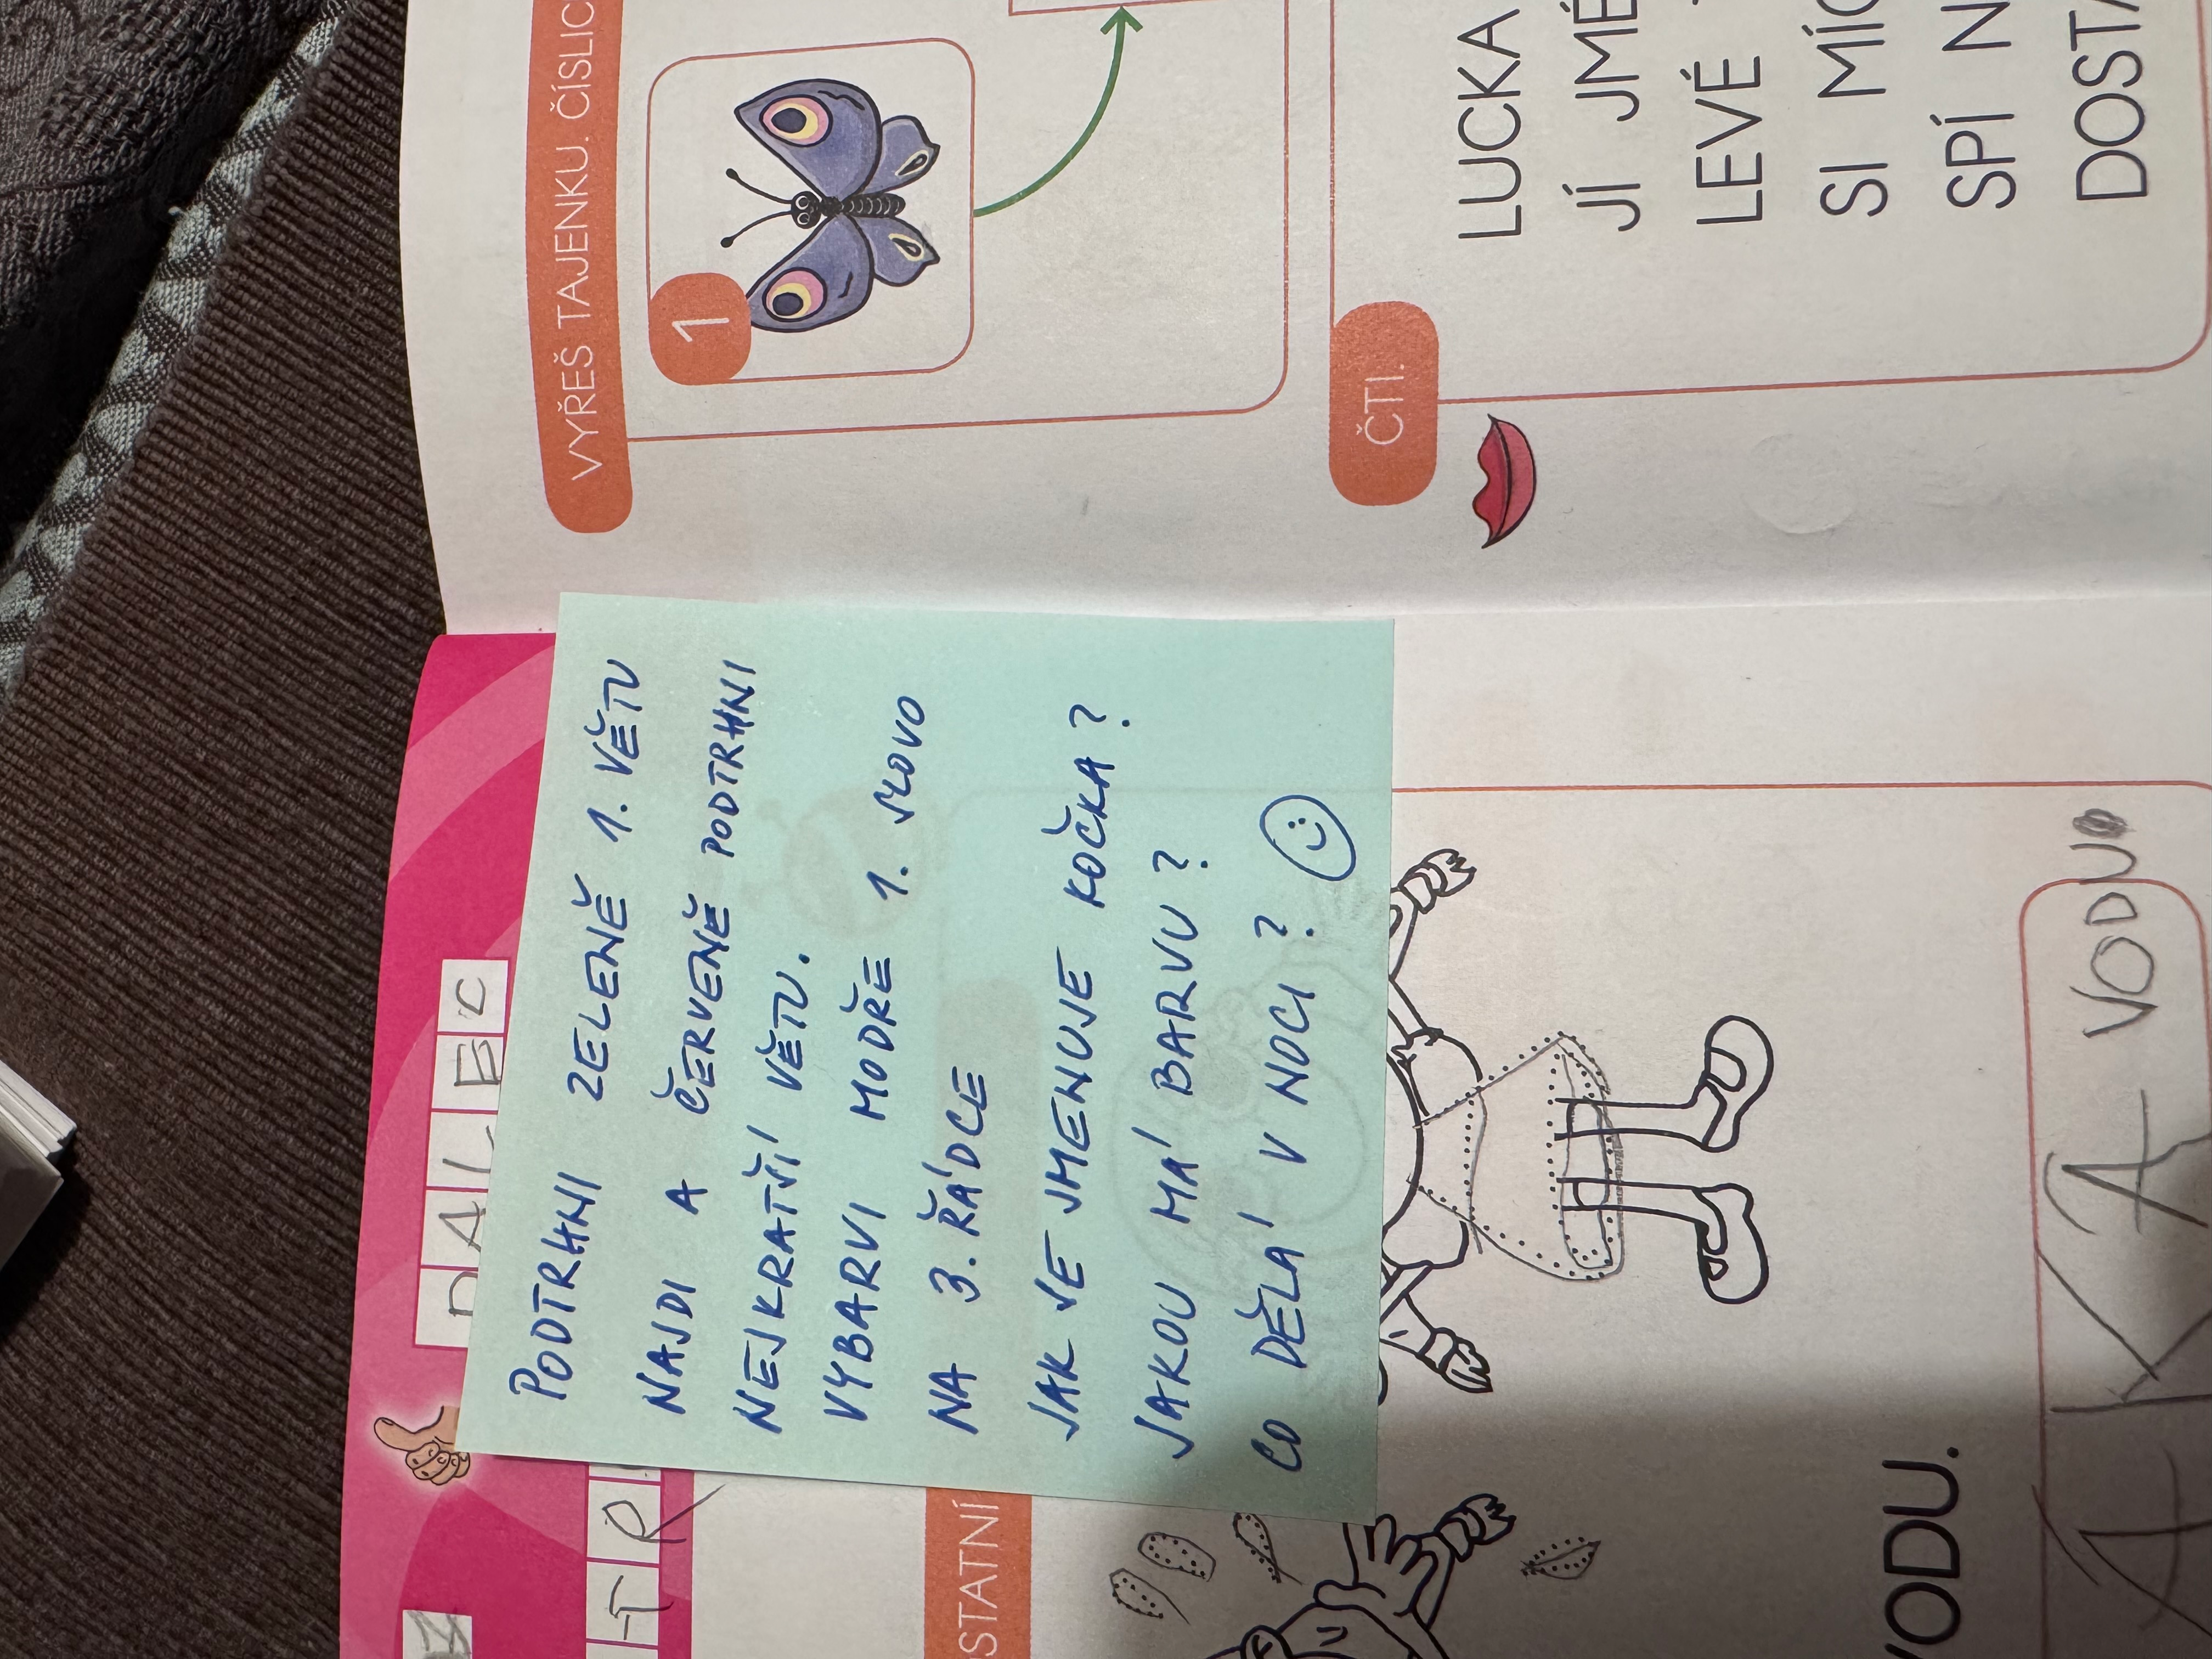 DALEC
TR
STATNÍ
PODTRHNI ZELENĚ 1. VĚTU
NAJDI A ČERVENĚ PODTRHNI
NEJKRATŠÍ VĚTU.
VYBARVI MODŘE 1. SLOVO
NA 3. ŘÁDCE
JAK SE JMENUJE KOČKA?
JAKOU MÁ BARVU?
CO DĚLÁ V NOCI?
VODU.
A KA VODU
VYŘEŠ TAJENKU. ČÍSLIC
1
ČTI.
LUCKA
JÍ JMÉ
LEVÉ
SI MÍC
SPÍ N
DOSTA